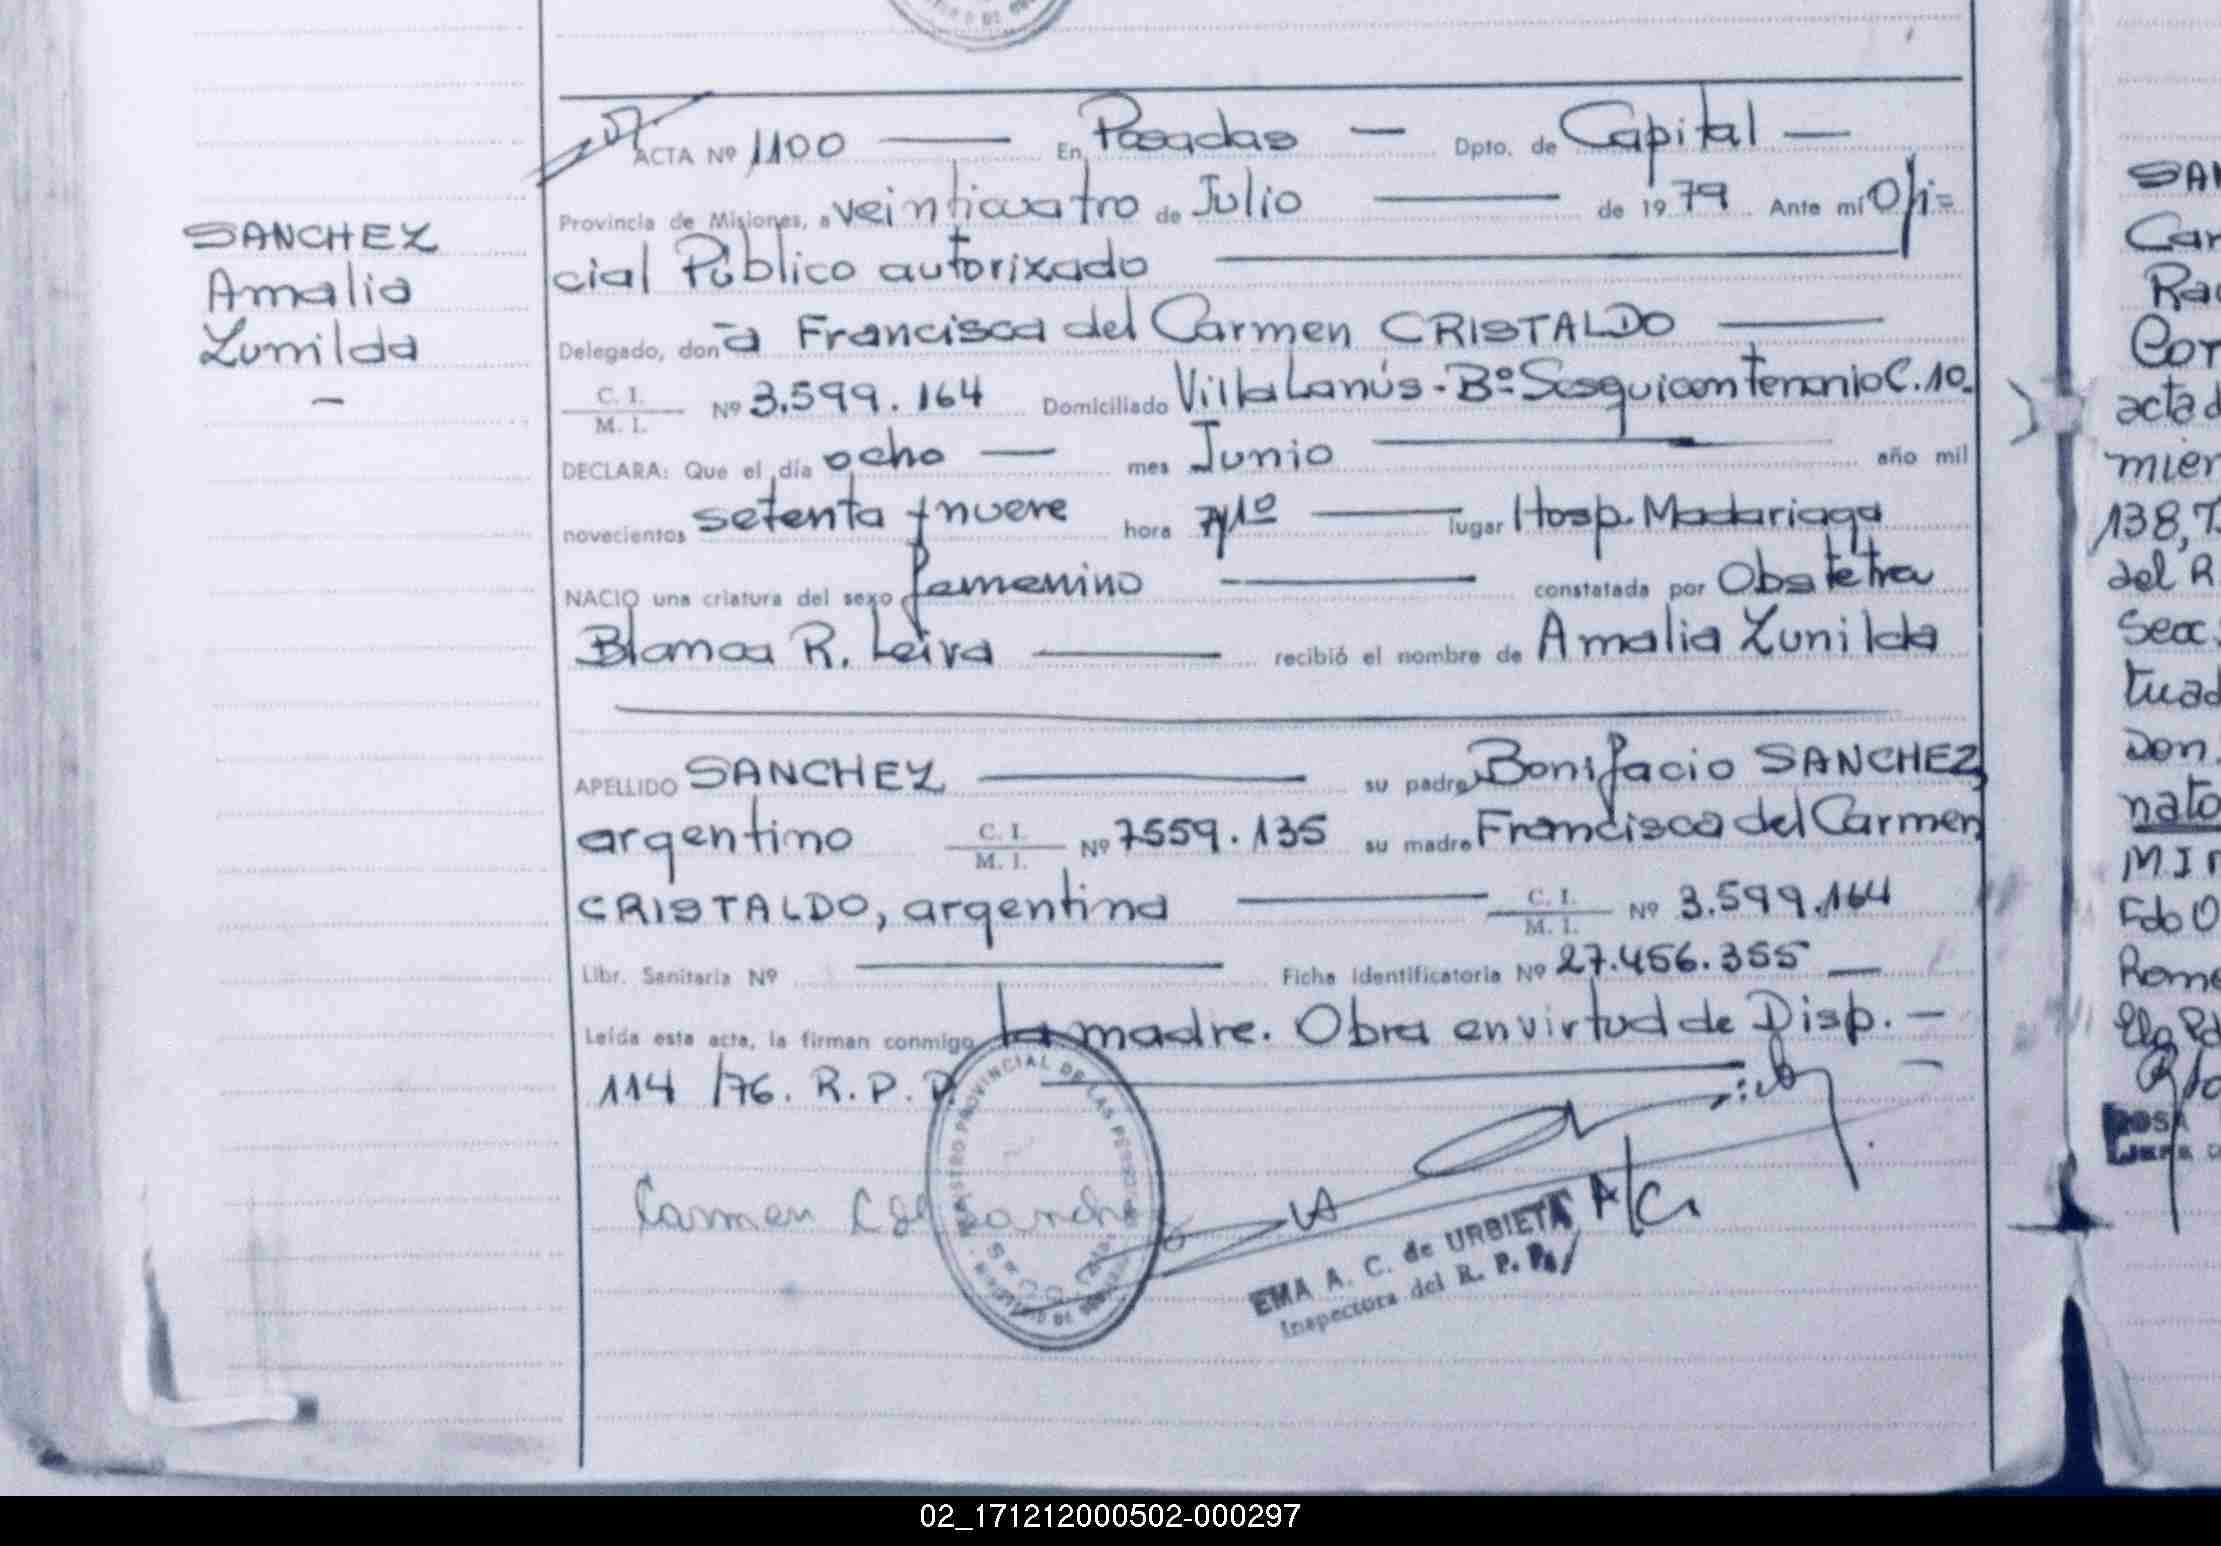 ACTA Nº 1100 — En Posadas — Dpto. de Capital —
Provincia de Misiones, a veinticuatro de Julio — de 1979 Ante mí Ofi=
cial Público autorizado —
SANCHEZ
Amalia
Zunilda
—
Delegado, doña Francisca del Carmen CRISTALDO —
C. I.
M. I. Nº 3.599.164 Domiciliado Villa Lanús - Bº Sesquicentenario C.10.
DECLARA: Que el día ocho — mes Junio — año mil
novecientos setenta y nueve hora 7y10 — lugar Hosp. Madariaga
NACIO una criatura del sexo femenino — constatada por Obstetra
Blanca R. Leiva — recibió el nombre de Amalia Zunilda
APELLIDO SANCHEZ — su padre Bonifacio SANCHEZ
argentino C. I.
M. I. Nº 7559.135 su madre Francisca del Carmen
CRISTALDO, argentina — C. I.
M. I. Nº 3.599.164
Libr. Sanitaria Nº — Ficha Identificatoria Nº 27.456.355 —
Leída esta acta, la firman conmigo la madre. Obra en virtud de Disp. —
114/76. R. P. P. —
REGISTRO PROVINCIAL DE LAS PERSONAS
Carmen C de Sanchez
A/C.
EMA A. C. de URBIETA
Inspectora del R. P. P.
Cor
acta d
138, T
del R
Secc.
tuad
Don
nato
M I
Fdo O
Rome
ROSA
JEFE
02_171212000502-000297